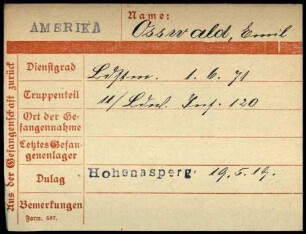 AMERIKA
Name:
Osswald, Emil
Aus der Gefangenschaft zurück
Dienstgrad
Ldstm. 1. 6. 71
Truppenteil
11/ Ldw. Inf. 120
Ort der Ge-
fangennahme
Letztes Gefan-
genenlager
Dulag
Hohenasperg 19. 5. 19.
Bemerkungen
Form. 587.